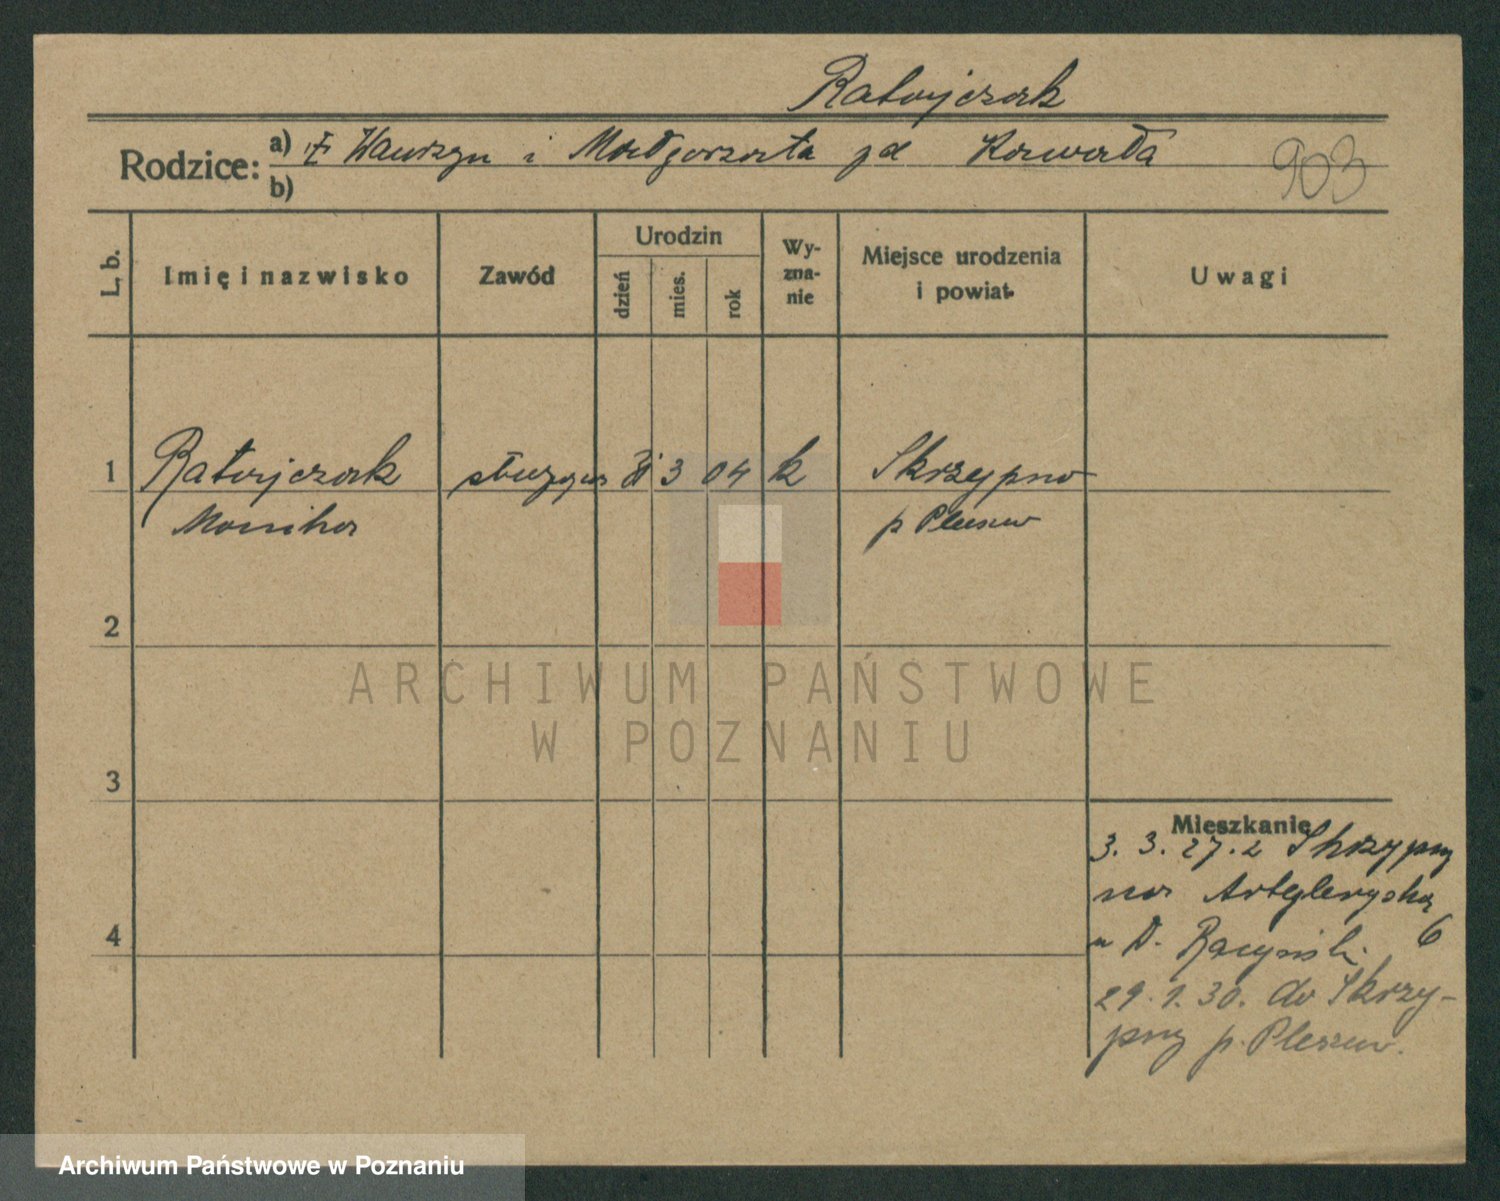 Ratajczak
Rodzice: a) Wawrzyn i Małgorzata zd Kawała
b)
903
L. b.
Imię i nazwisko
Zawód
Urodzin
dzień
mies.
rok
Wy-
zna-
nie
Miejsce urodzenia
i powiat
Uwagi
1 Ratajczak służąca 3 04 k Skrzypno
Monika p Pleszew
2
3
4
Mieszkanie
3. 3. 27. z Skrzypny
na Artyleryjską
u D. 6
29. 1. 30. do Skrzy-
pny p. Pleszew.
ARCHIWUM PAŃSTWOWE
W POZNANIU
Archiwum Państwowe w Poznaniu